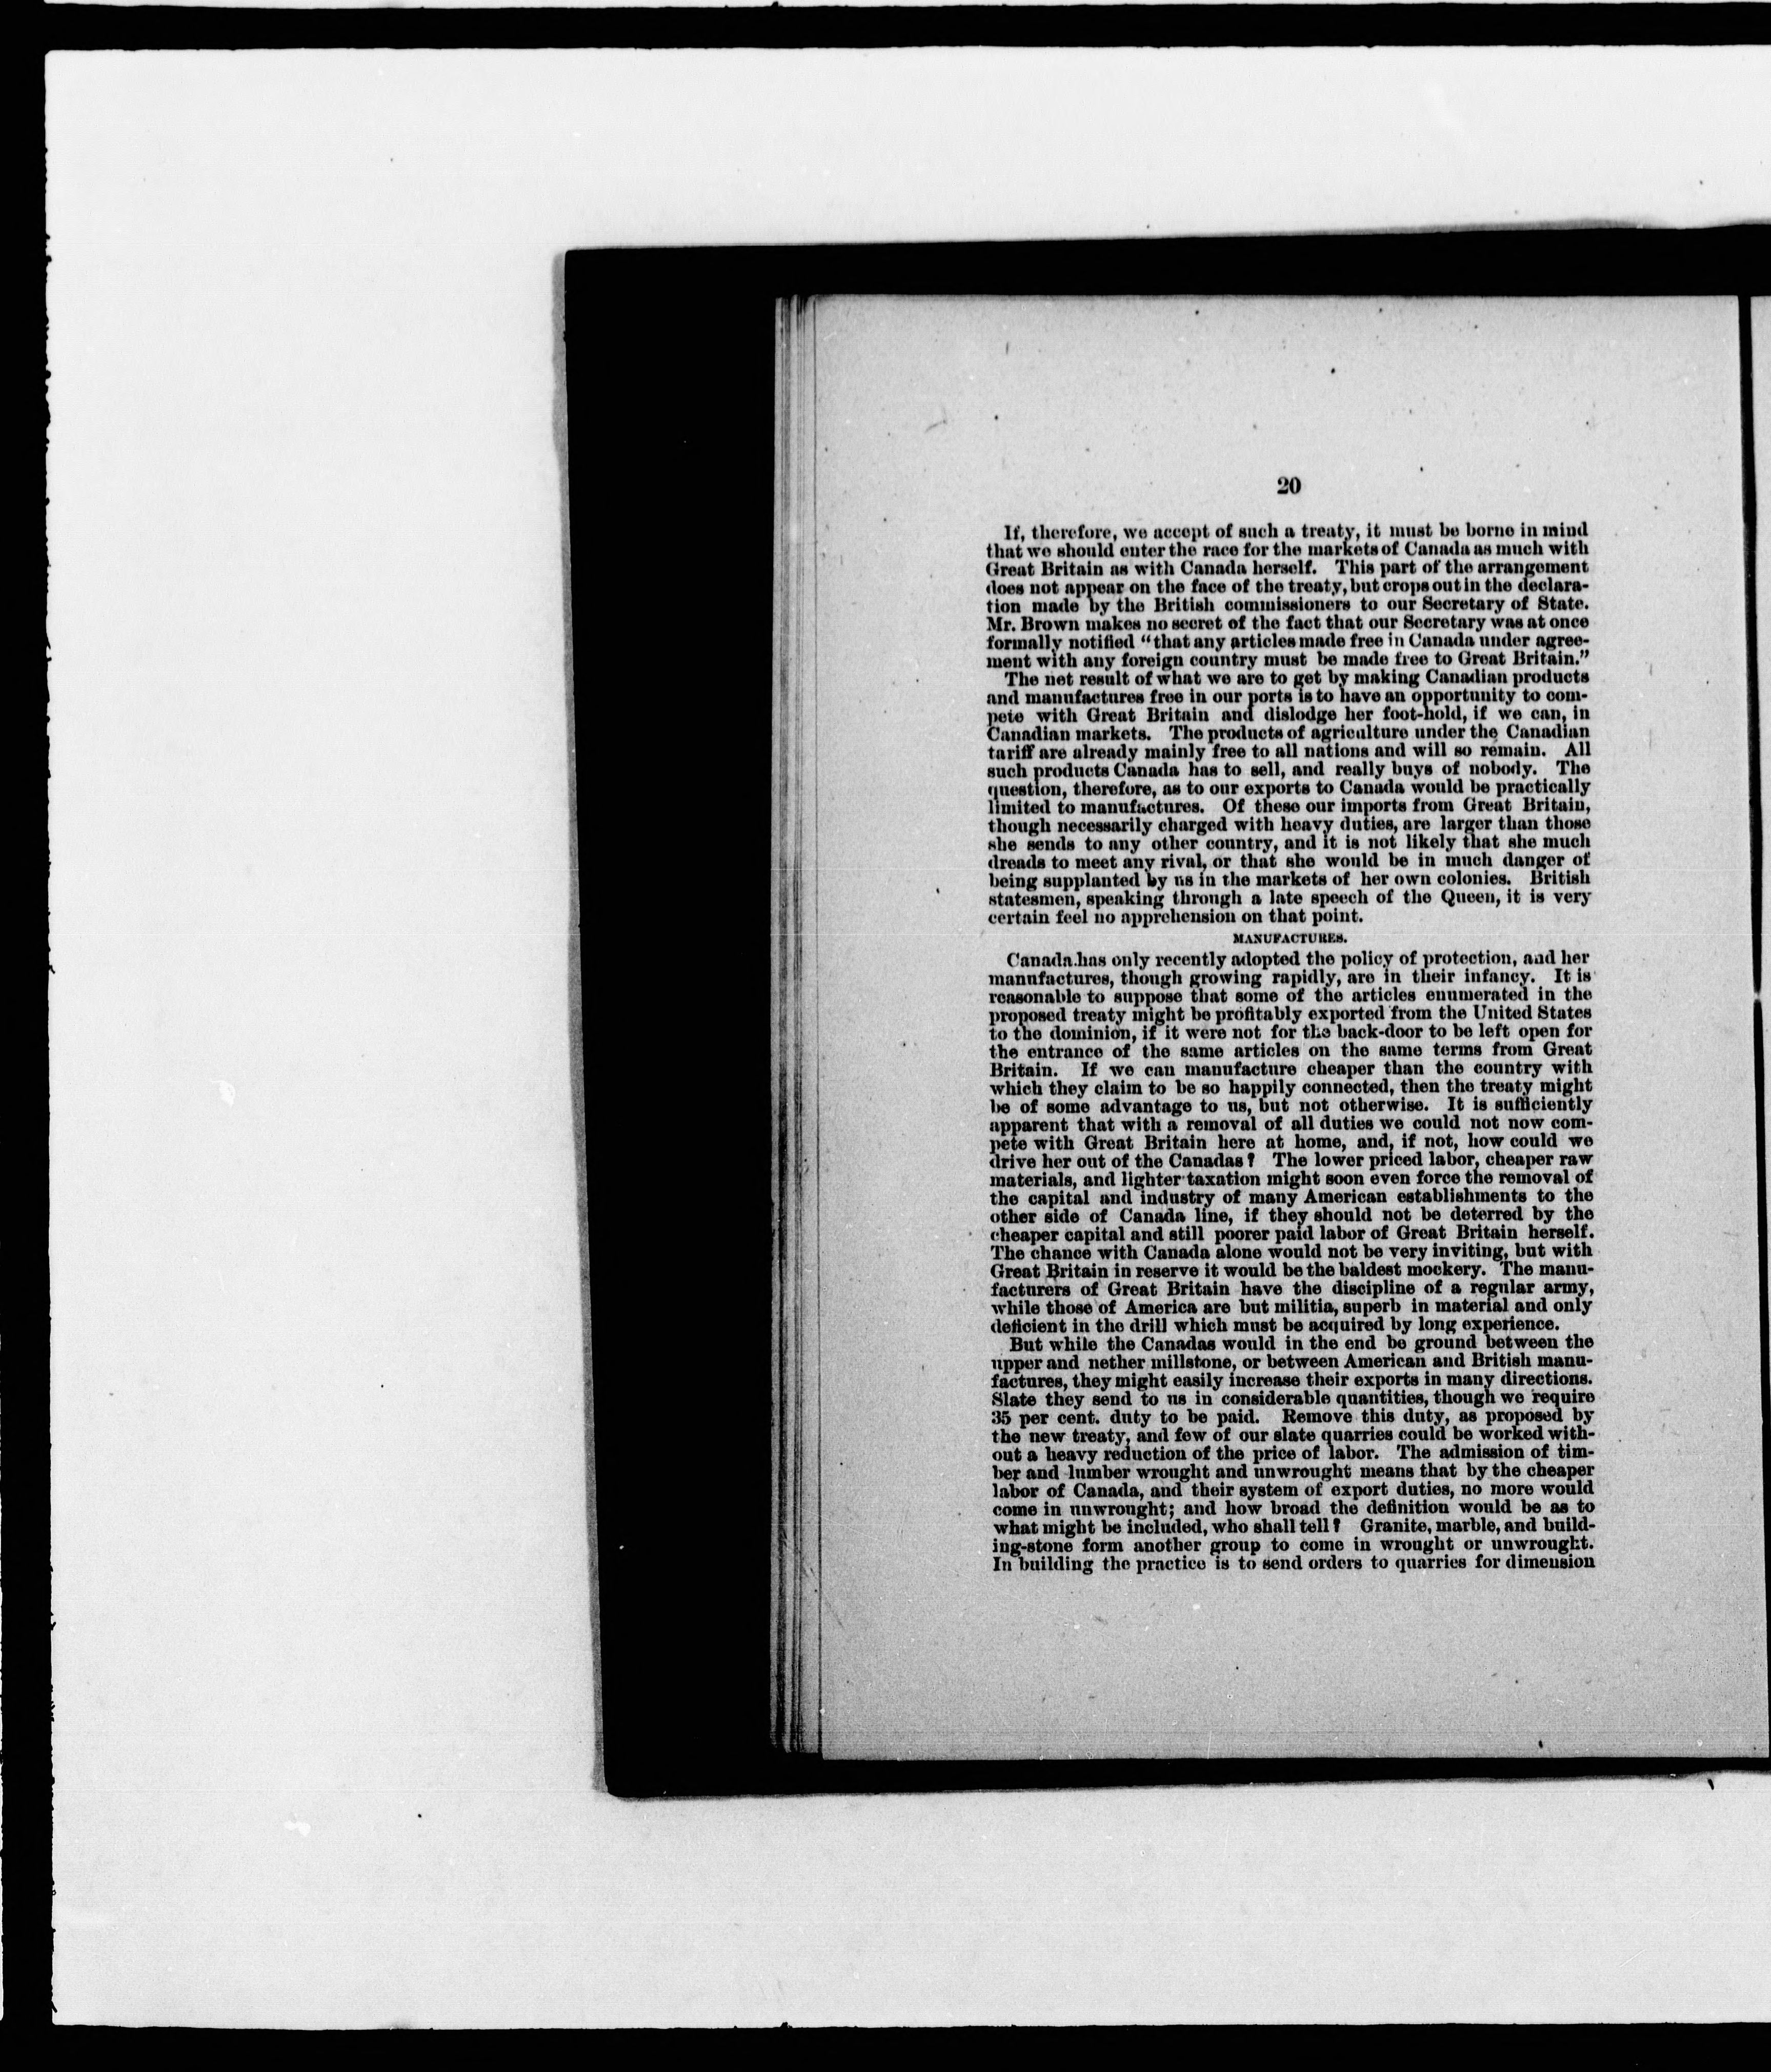 20
If, therefore, we accept of such a treaty, it must be borne in mind
that we should enter the race for the markets of Canada as much with
Great Britain as with Canada herself. This part of the arrangement
does not appear on the face of the treaty, but crops out in the declara-
tion made by the British commissioners to our Secretary of State.
Mr. Brown makes no secret of the fact that our Secretary was at once
formally notified "that any articles made free in Canada under agree-
ment with any foreign country must be made free to Great Britain."
The net result of what we are to get by making Canadian products
and manufactures free in our ports is to have an opportunity to com-
pete with Great Britain and dislodge her foot-hold, if we can, in
Canadian markets. The products of agriculture under the Canadian
tariff are already mainly free to all nations and will so remain. All
such products Canada has to sell, and really buys of nobody. The
question, therefore, as to our exports to Canada would be practically
limited to manufactures. Of these our imports from Great Britain,
though necessarily charged with heavy duties, are larger than those
she sends to any other country, and it is not likely that she much
dreads to meet any rival, or that she would be in much danger of
being supplanted by us in the markets of her own colonies. British
statesmen, speaking through a late speech of the Queen, it is very
certain feel no apprehension on that point.
MANUFACTURES.
Canada has only recently adopted the policy of protection, and her
manufactures, though growing rapidly, are in their infancy. It is
reasonable to suppose that some of the articles enumerated in the
proposed treaty might be profitably exported from the United States
to the dominion, if it were not for the back-door to be left open for
the entrance of the same articles on the same terms from Great
Britain. If we can manufacture cheaper than the country with
which they claim to be so happily connected, then the treaty might
be of some advantage to us, but not otherwise. It is sufficiently
apparent that with a removal of all duties we could not now com-
pete with Great Britain here at home, and, if not, how could we
drive her out of the Canadas? The lower priced labor, cheaper raw
materials, and lighter taxation might soon even force the removal of
the capital and industry of many American establishments to the
other side of Canada line, if they should not be deterred by the
cheaper capital and still poorer paid labor of Great Britain herself.
The chance with Canada alone would not be very inviting, but with
Great Britain in reserve it would be the baldest mockery. The manu-
facturers of Great Britain have the discipline of a regular army,
while those of America are but militia, superb in material and only
deficient in the drill which must be acquired by long experience.
But while the Canadas would in the end be ground between the
upper and nether millstone, or between American and British manu-
factures, they might easily increase their exports in many directions.
Slate they send to us in considerable quantities, though we require
35 per cent. duty to be paid. Remove this duty, as proposed by
the new treaty, and few of our slate quarries could be worked with-
out a heavy reduction of the price of labor. The admission of tim-
ber and lumber wrought and unwrought means that by the cheaper
labor of Canada, and their system of export duties, no more would
come in unwrought; and how broad the definition would be as to
what might be included, who shall tell? Granite, marble, and build-
ing-stone form another group to come in wrought or unwrought.
In building the practice is to send orders to quarries for dimension